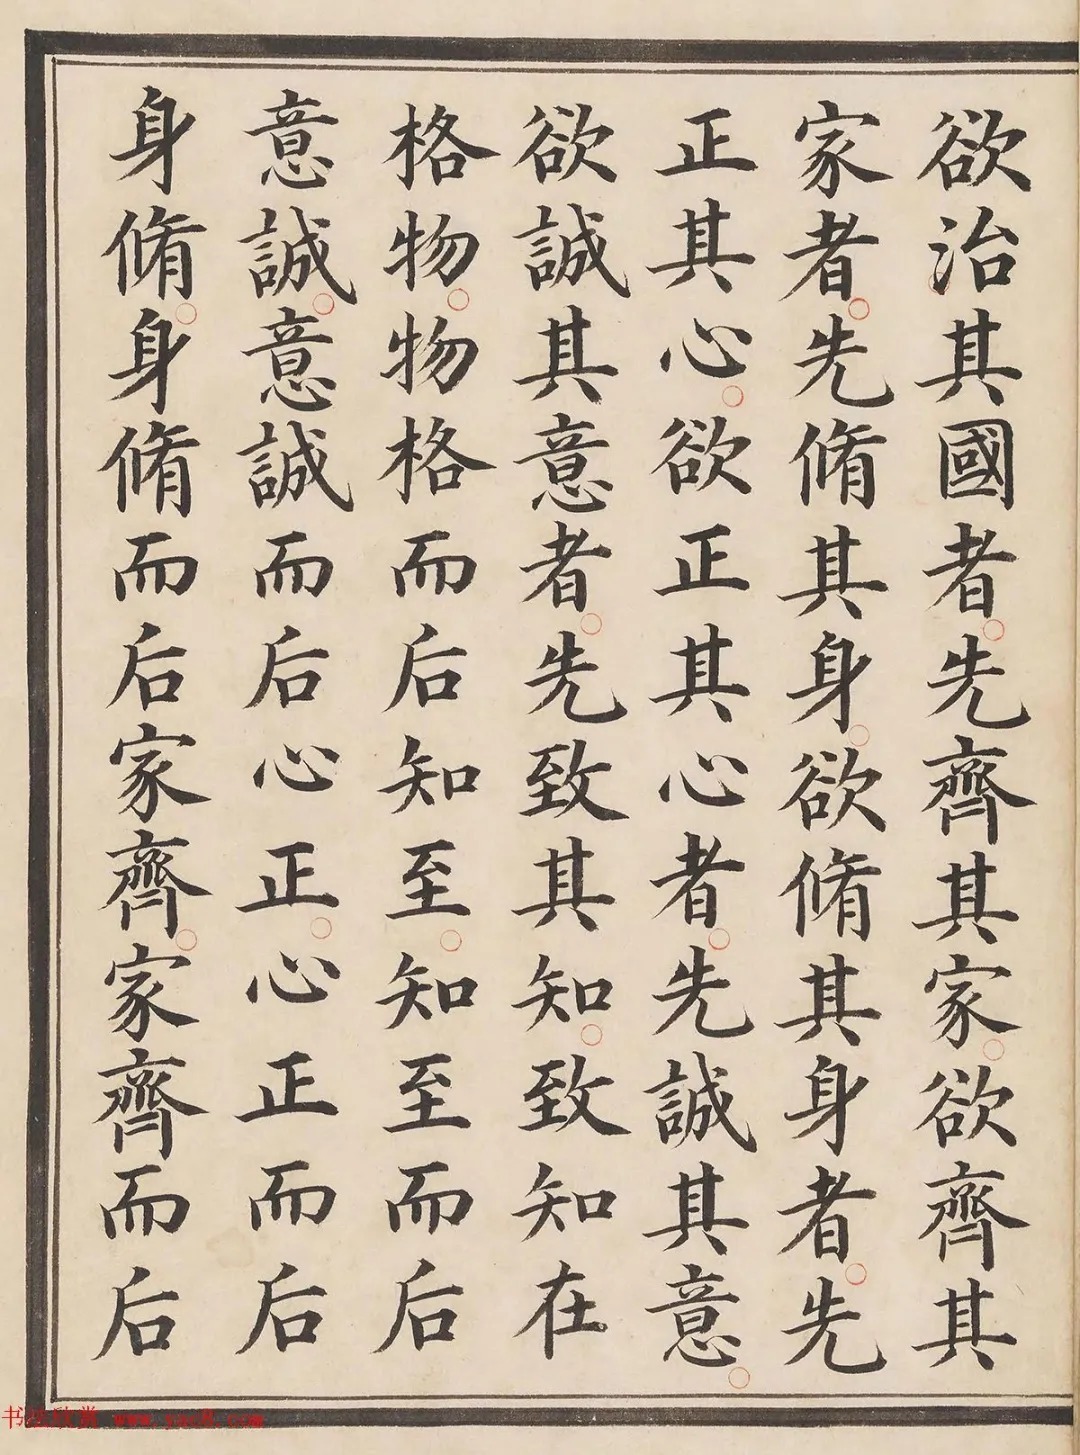 欲治其國者先齊其家欲齊其
家者先脩其身欲脩其身者先
正其心欲正其心者先誠其意
欲誠其意者先致其知致知在
格物物格而后知至知至而后
意誠意誠而后心正心正而后
身脩身脩而后家齊家齊而后
书法欣赏